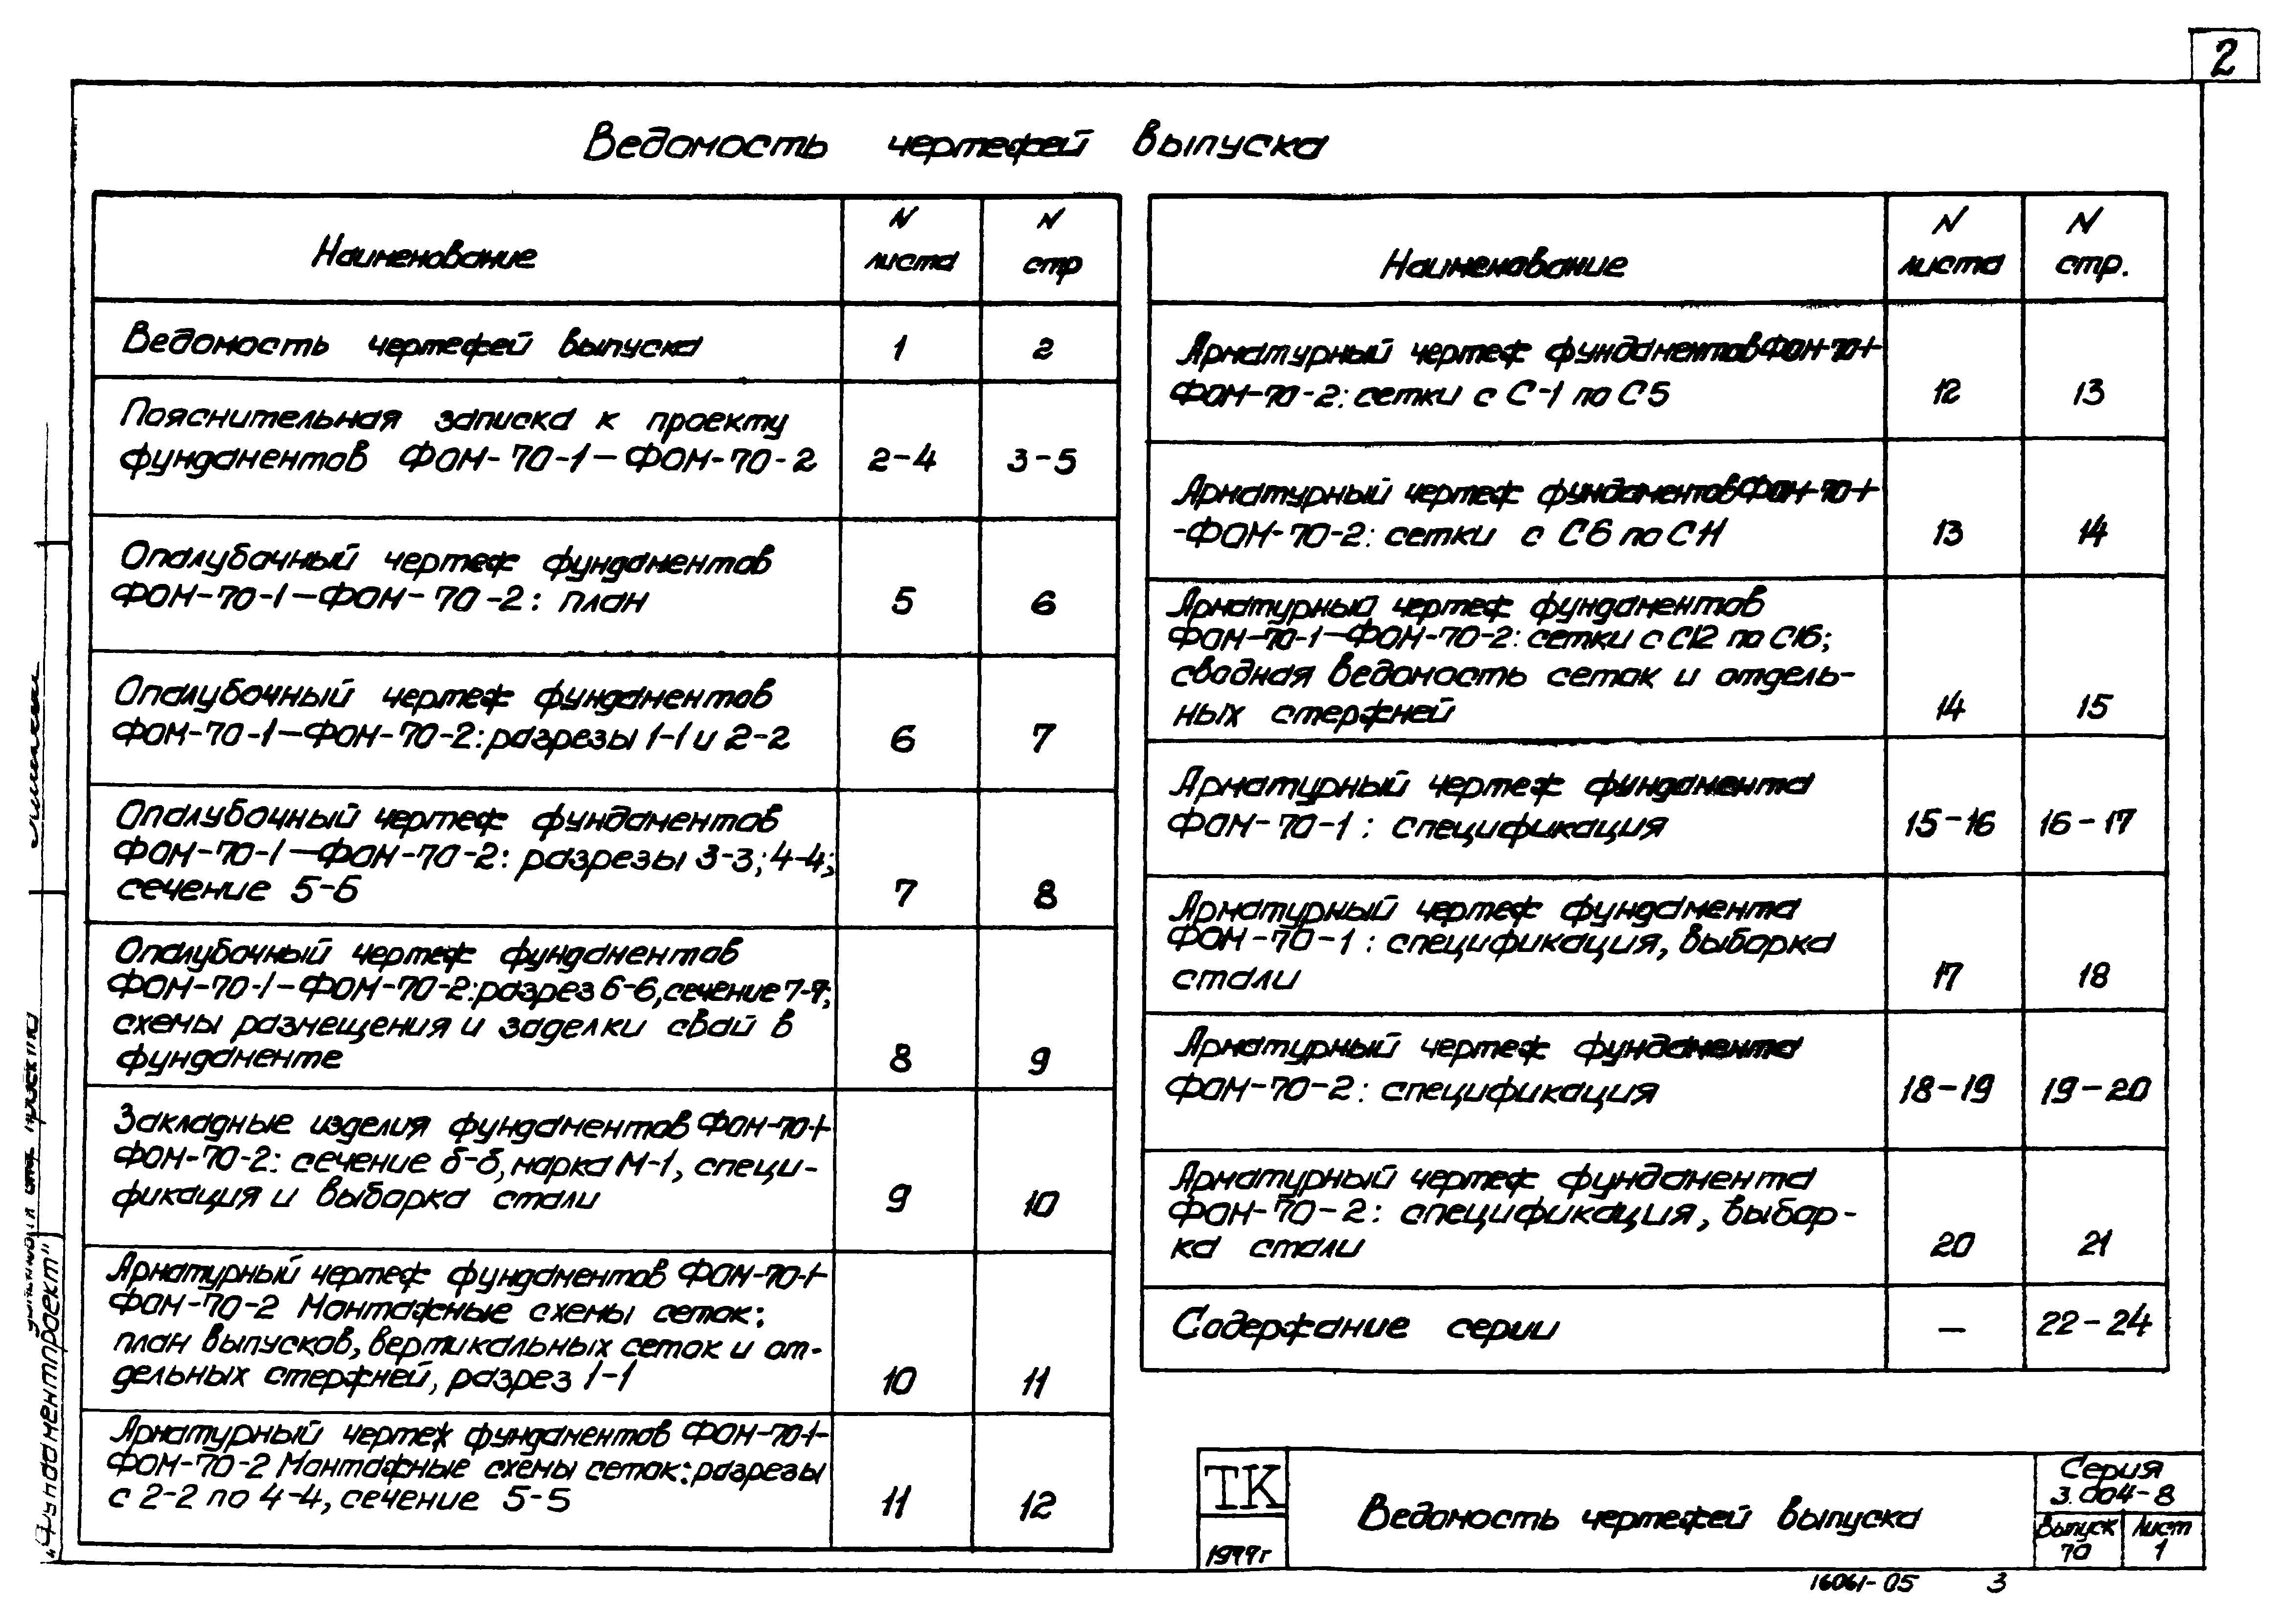 2
Ведомость чертежей выпуска
Наименование
N листа
N стр
Ведомость чертежей выпуска
1
2
Пояснительная записка к проекту
фундаментов ФОМ-70-1—ФОМ-70-2
2-4
3-5
Опалубочный чертеж фундаментов
ФОМ-70-1—ФОМ-70-2: план
5
6
Опалубочный чертеж фундаментов
ФОМ-70-1—ФОМ-70-2: разрезы 1-1 и 2-2
6
7
Опалубочный чертеж фундаментов
ФОМ-70-1—ФОМ-70-2: разрезы 3-3; 4-4;
сечение 5-5
7
8
Опалубочный чертеж фундаментов
ФОМ-70-1—ФОМ-70-2: разрез 6-6, сечение 7-7;
схемы размещения и заделки свай в
фундаменте
8
9
Закладные изделия фундаментов ФОМ-70-1-
ФОМ-70-2: сечение б-б, марка М-1, специ-
фикация и выборка стали
9
10
Арматурный чертеж фундаментов ФОМ-70-1-
ФОМ-70-2 Монтажные схемы сеток:
план выпусков, вертикальных сеток и от-
дельных стержней, разрез 1-1
10
11
Арматурный чертеж фундаментов ФОМ-70-1-
ФОМ-70-2 Монтажные схемы сеток: разрезы
с 2-2 по 4-4, сечение 5-5
11
12
Наименование
N листа
N стр.
Арматурный чертеж фундаментов ФОМ-70-1-
ФОМ-70-2: сетки с С-1 по С5
12
13
Арматурный чертеж фундаментов ФОМ-70-1-
-ФОМ-70-2: сетки с С6 по С11
13
14
Арматурный чертеж фундаментов
ФОМ-70-1—ФОМ-70-2: сетки с С12 по С16;
сводная ведомость сеток и отдель-
ных стержней
14
15
Арматурный чертеж фундамента
ФОМ-70-1: спецификация
15-16
16-17
Арматурный чертеж фундамента
ФОМ-70-1: спецификация, выборка
стали
17
18
Арматурный чертеж фундамента
ФОМ-70-2: спецификация
18-19
19-20
Арматурный чертеж фундамента
ФОМ-70-2: спецификация, выбор-
ка стали
20
21
Содержание серии
—
22-24
ТК
1977г
Ведомость чертежей выпуска
Серия
3.004-8
Выпуск
70
Лист
1
16061-05 3
„Фундаментпроект"